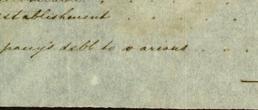 establishment . . .
pany's debt to various . . .